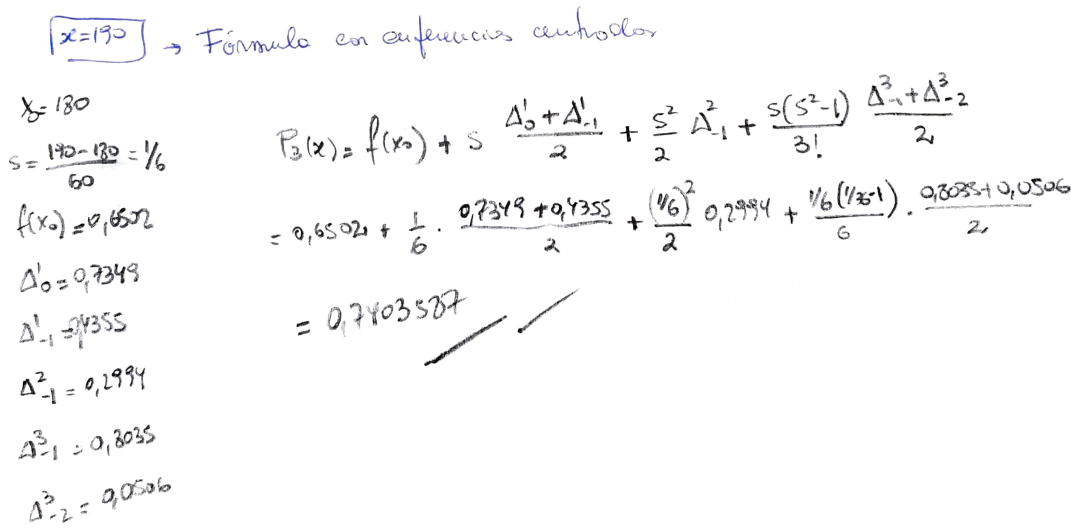 x=190 → Fórmula con diferencias centradas
x₀=180
s = (190-180)/60 = 1/6
f(x₀) = 0,6502
Δ¹₀ = 0,7349
Δ¹₋₁ = 0,4355
Δ²₋₁ = 0,2994
Δ³₋₁ = 0,3035
Δ³₋₂ = 0,0506
P₃(x) = f(x₀) + s (Δ¹₀ + Δ¹₋₁)/2 + s²/2 Δ²₋₁ + s(s²-1)/3! (Δ³₋₁ + Δ³₋₂)/2
= 0,6502 + 1/6 · (0,7349 + 0,4355)/2 + (1/6)²/2 0,2994 + 1/6(1/36-1)/6 · (0,3035 + 0,0506)/2
= 0,7403587